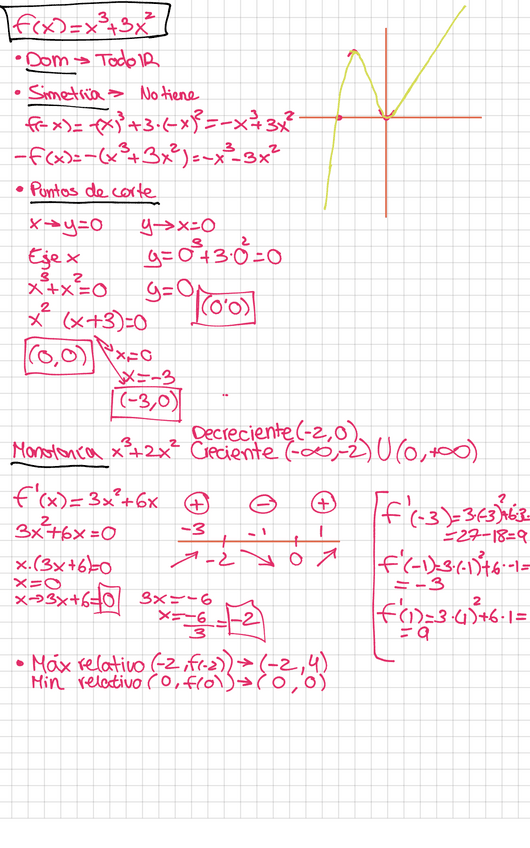 f(x)=x³+3x²
• Dom → Todo ℝ
• Simetria → No tiene
f(-x)= -(x)³+3·(-x)²=-x³+3x²
-f(x)=-(x³+3x²)=-x³-3x²
• Puntos de corte
x→y=0 y→x=0
Eje x y=0³+3·0²=0
x³+x²=0 y=0 (0,0)
x² (x+3)=0
(0,0) x=0
x=-3
(-3,0)
Decreciente (-2,0)
Monotonía x³+2x² Creciente (-∞,-2) ∪ (0,+∞)
f'(x)=3x²+6x + - +
3x²+6x=0 -3 -1 1
x.(3x+6)=0 -2 0
x=0
x→3x+6=0 3x=-6
x=-6/3=-2
f'(-3)=3·(-3)²+6·3=
=27-18=9
f'(-1)=3·(-1)²+6·-1=
=-3
f'(1)=3·(1)²+6·1=
=9
• Máx relativo (-2,f(-2))→(-2,4)
Min relativo (0,f(0))→(0,0)